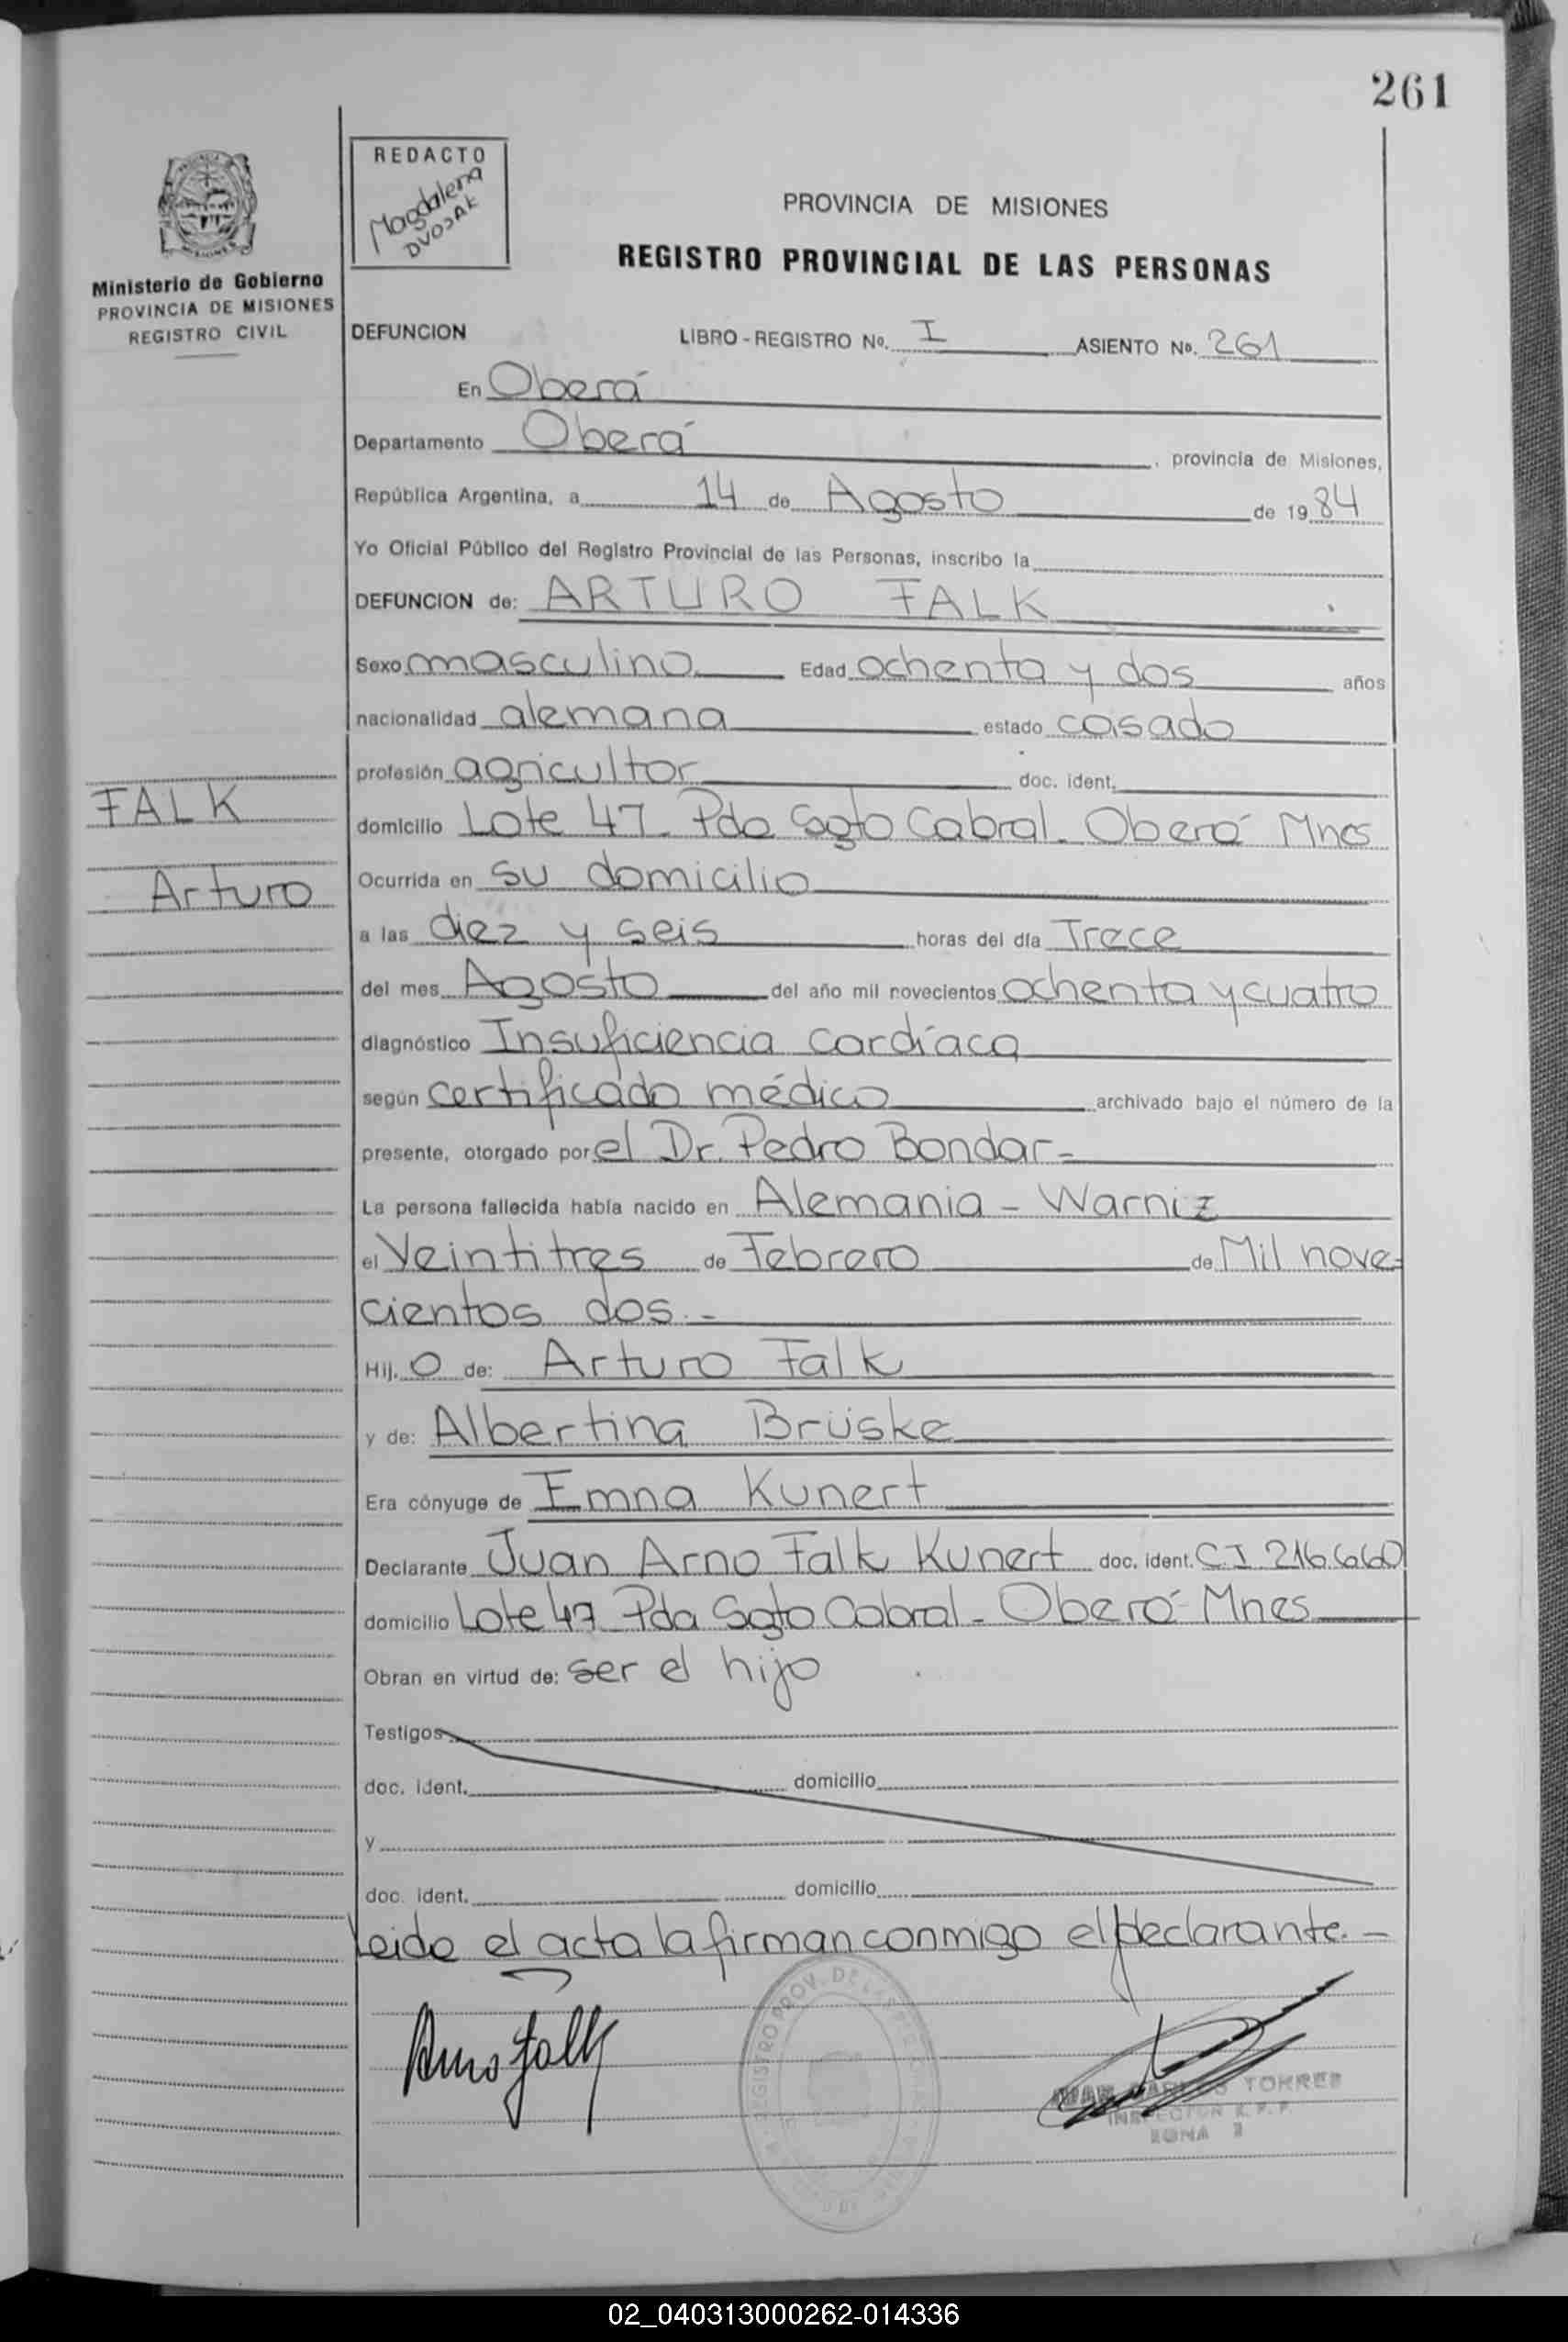 261
REDACTO
Magdalena
DVOJAK
PROVINCIA DE MISIONES
REGISTRO PROVINCIAL DE LAS PERSONAS
Ministerio de Gobierno
PROVINCIA DE MISIONES
REGISTRO CIVIL
DEFUNCION LIBRO-REGISTRO Nº. I ASIENTO Nº. 261
En Oberá
Departamento Oberá, provincia de Misiones,
República Argentina, a 14 de Agosto de 1984
Yo Oficial Público del Registro Provincial de las Personas, inscribo la
DEFUNCION de: ARTURO FALK
Sexo masculino Edad ochenta y dos años
nacionalidad alemana estado casado
profesión agricultor doc. ident.
FALK
Arturo
domicilio Lote 47- Pda Sgto Cabral- Oberá Mnes
Ocurrida en su domicilio
a las diez y seis horas del día Trece
del mes Agosto del año mil novecientos ochenta y cuatro
diagnóstico Insuficiencia cardíaca
según certificado médico archivado bajo el número de la
presente, otorgado por el Dr. Pedro Bondar-
La persona fallecida había nacido en Alemania - Warniz
el Veintitres de Febrero de Mil nove-
cientos dos.-
Hij. o de: Arturo Falk
y de: Albertina Brüske
Era cónyuge de Emna Kunert
Declarante Juan Arno Falk Kunert doc. ident. C.I 216.660
domicilio Lote 47- Pda Sgto Cabral- Oberá- Mnes
Obran en virtud de: ser el hijo
Testigos
doc. ident. domicilio
y
doc. ident. domicilio
Leida el acta la firman conmigo el declarante.-
Arno Falk
REGISTRO PROV. DE LAS
JUAN CARLOS TORRES
INSPECTOR R. P. P.
ZONA
02_040313000262-014336